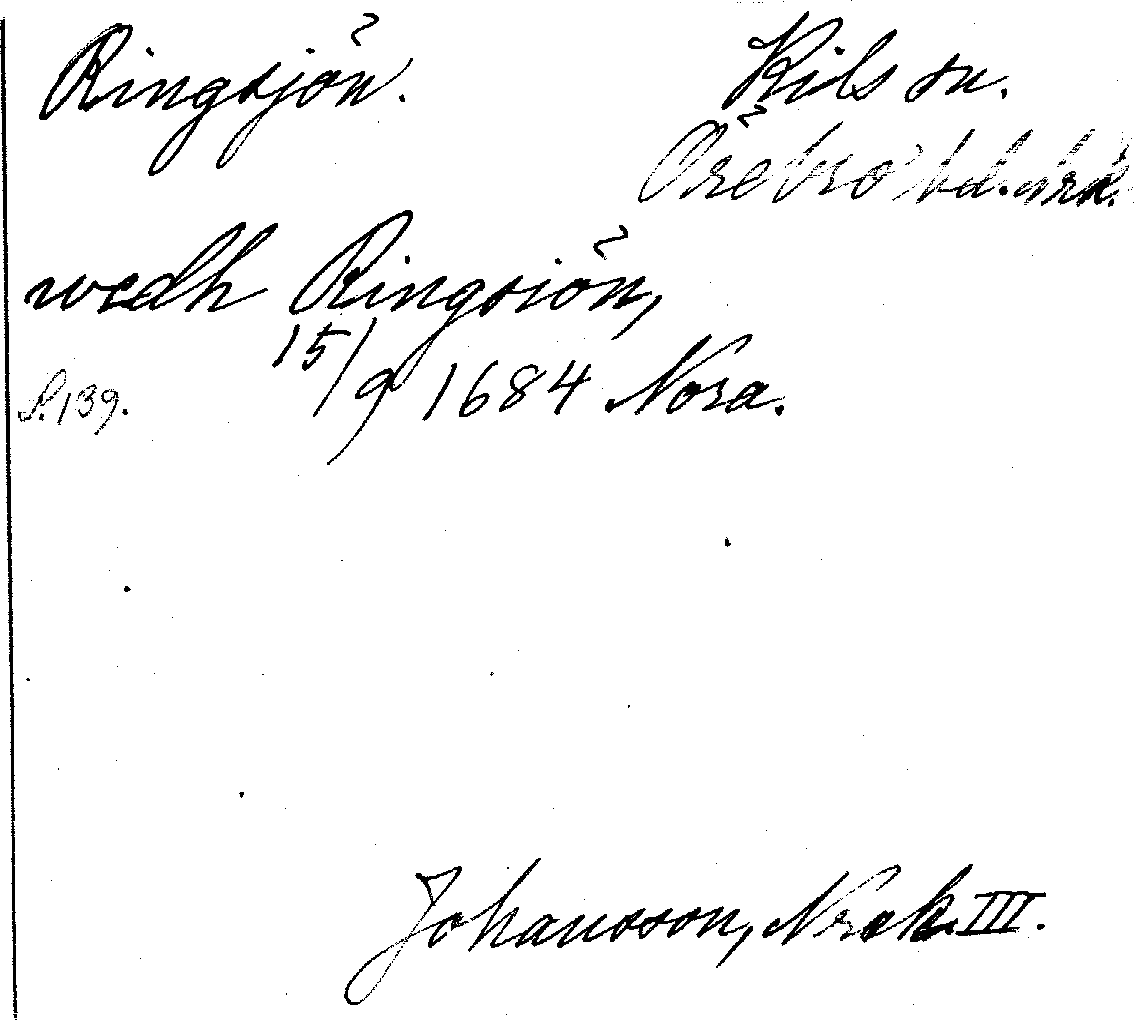 Ringsjön. Kils sn.
Örebro hd. Nrk.
wedh Ringsiön,
15/9 1684 Nora.
S. 139.
Johansson, Nrek. III.